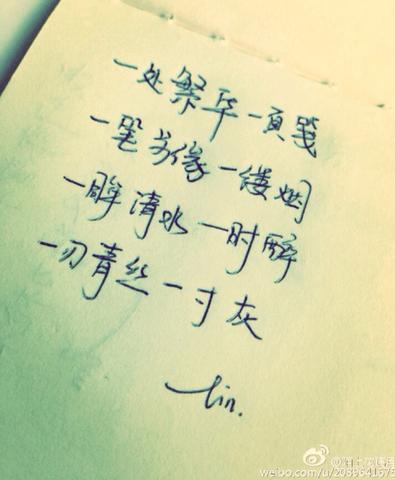 一处繁华一页笺
一笔苏缘一缕烟
一眸清水一时醉
一刃青丝一寸灰
lin.
weibo.com/u/2089641575